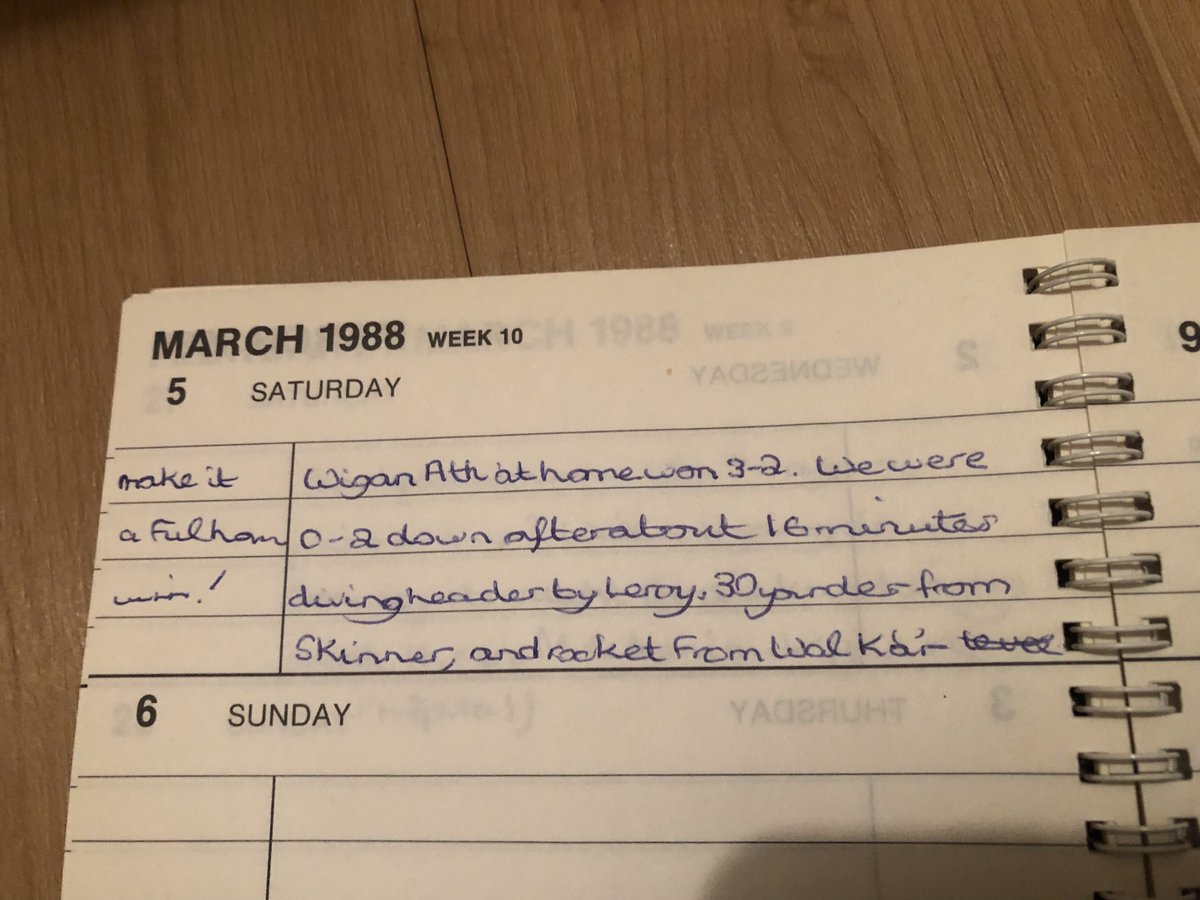 MARCH 1988 WEEK 10
5 SATURDAY
Wigan Ath at home won 3-2. We were
0-2 down after about 16 minutes
diving header by Leroy, 30 yarder from
Skinner, and rocket from Walker
make it
a Fulham
win!
6 SUNDAY
9